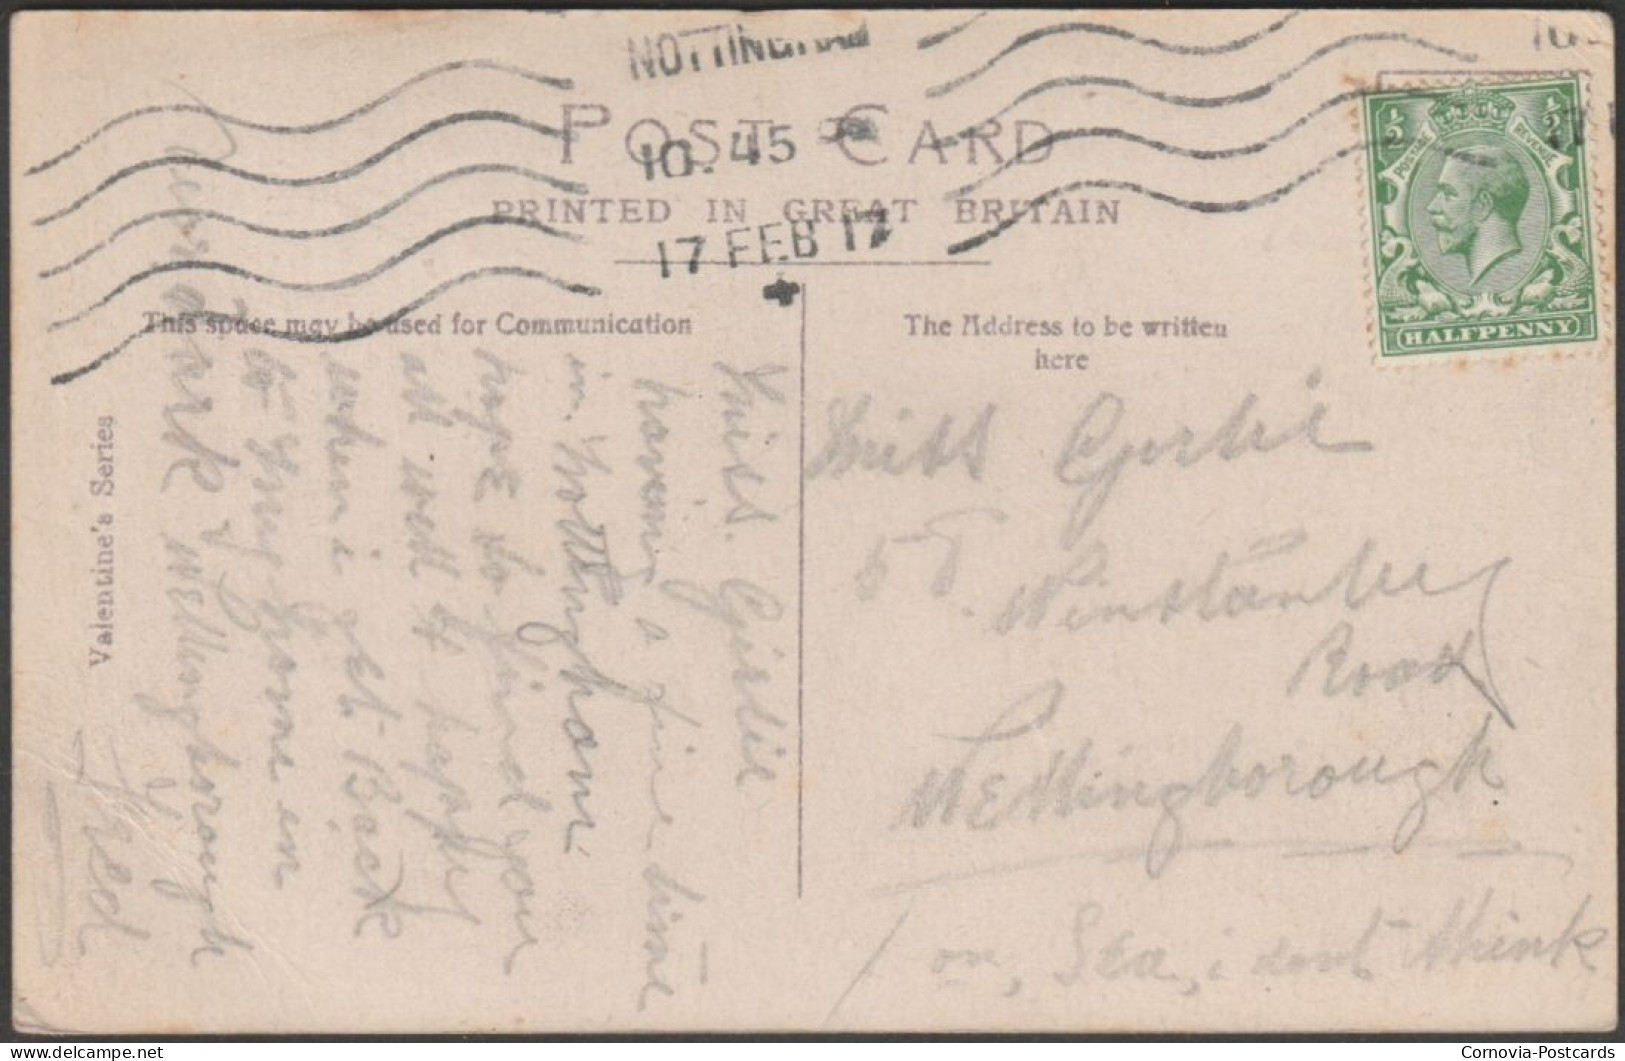 NOTTINGHAM
10. 45
17 FEB 17
POST CARD
PRINTED IN GREAT BRITAIN
This space may be used for Communication
The Address to be written
here
½ ½
POSTAGE REVENUE
HALFPENNY
Valentine's Series
Miss. Girlie
having a fine time
in. Nottingham.
hope to find you
all well & happy
when i get Back
to my home in
dark Wellingborough
Fred
Miss
Road
Wellingborough
on, Sea, i dont think
Cornovia-Postcards